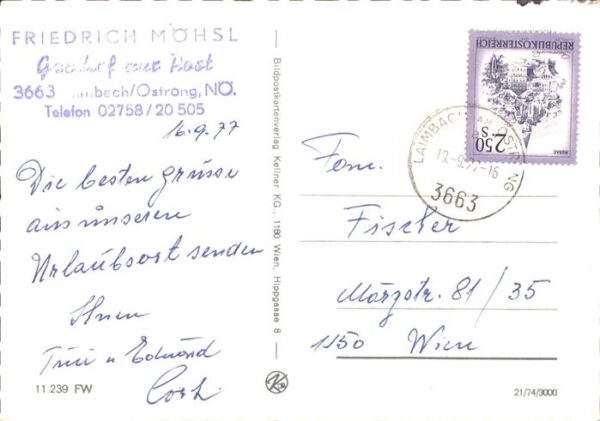 FRIEDRICH MÖHSL
Gasthof zur Post
3663 Laimbach/Ostrong, NÖ.
Telefon 02758/20 505
16.9.77
Die besten Grüsse
aus unseren
Urlaubsort senden
Ihnen
u Edmund
11.239 FW
Bildpostkartenverlag Kellner KG., 1160 Wien, Hippgasse 8
REPUBLIK ÖSTERREICH
S 2.50
MURAU
LAIMBACH AM OSTRONG
-9.77-16
3663
Fam.
Fischer
Märzstr. 81/35
1150 Wien
21/74/3000